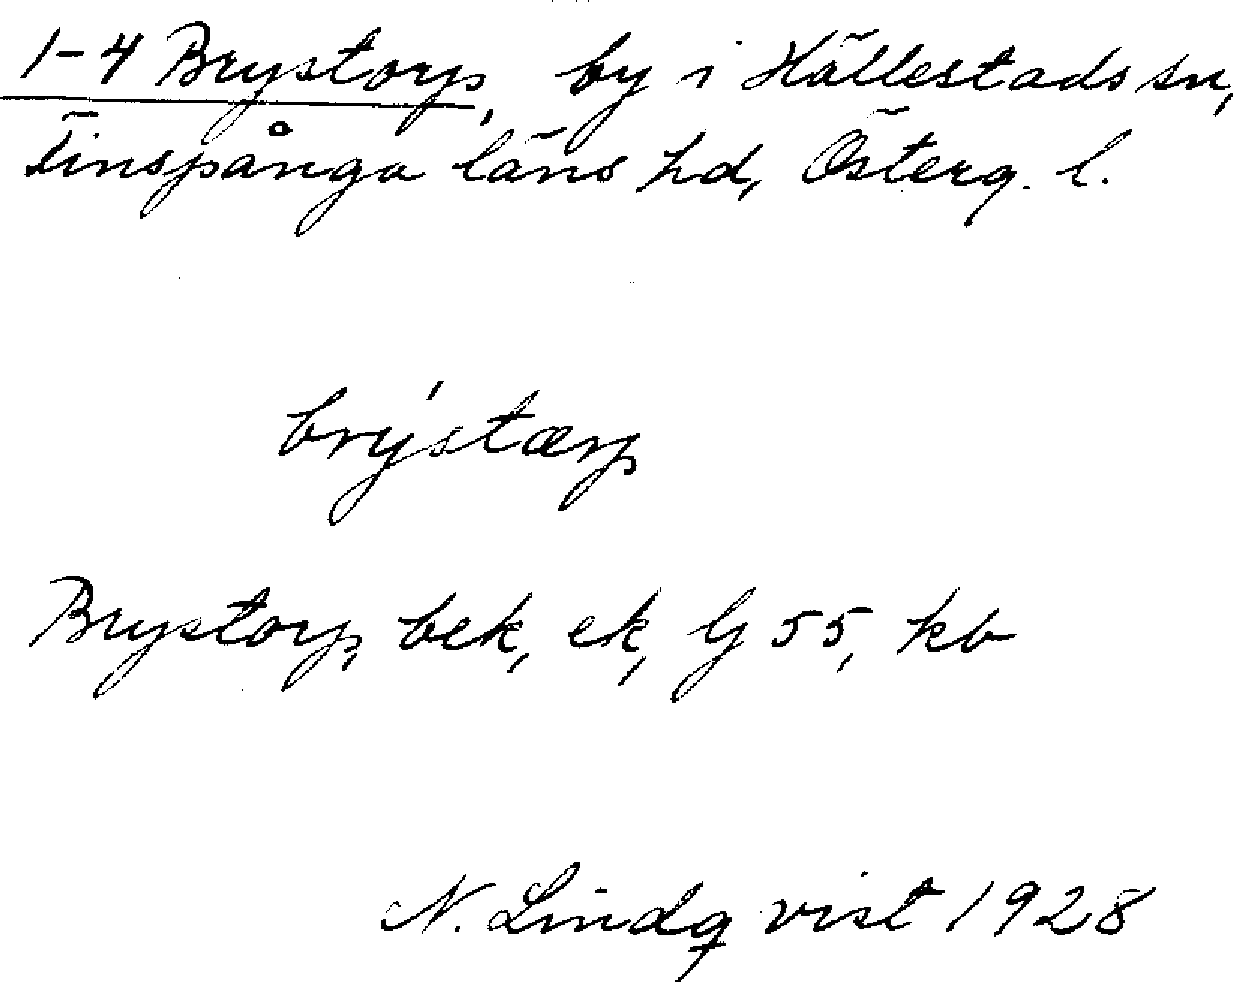 1-4 Brystorp, by i Hällestads sn,
Finspånga läns hd, Österg. l.
brýstærp
Brystorp, bek, ek, Gj 55, kb
N. Lindqvist 1928